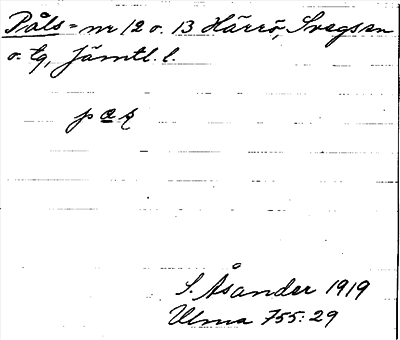 Påls = nr 12 o. 13 Härrö, Svegs sn
o. tg, Jämtl. l.
S. Åsander 1919
Ulma 755:29